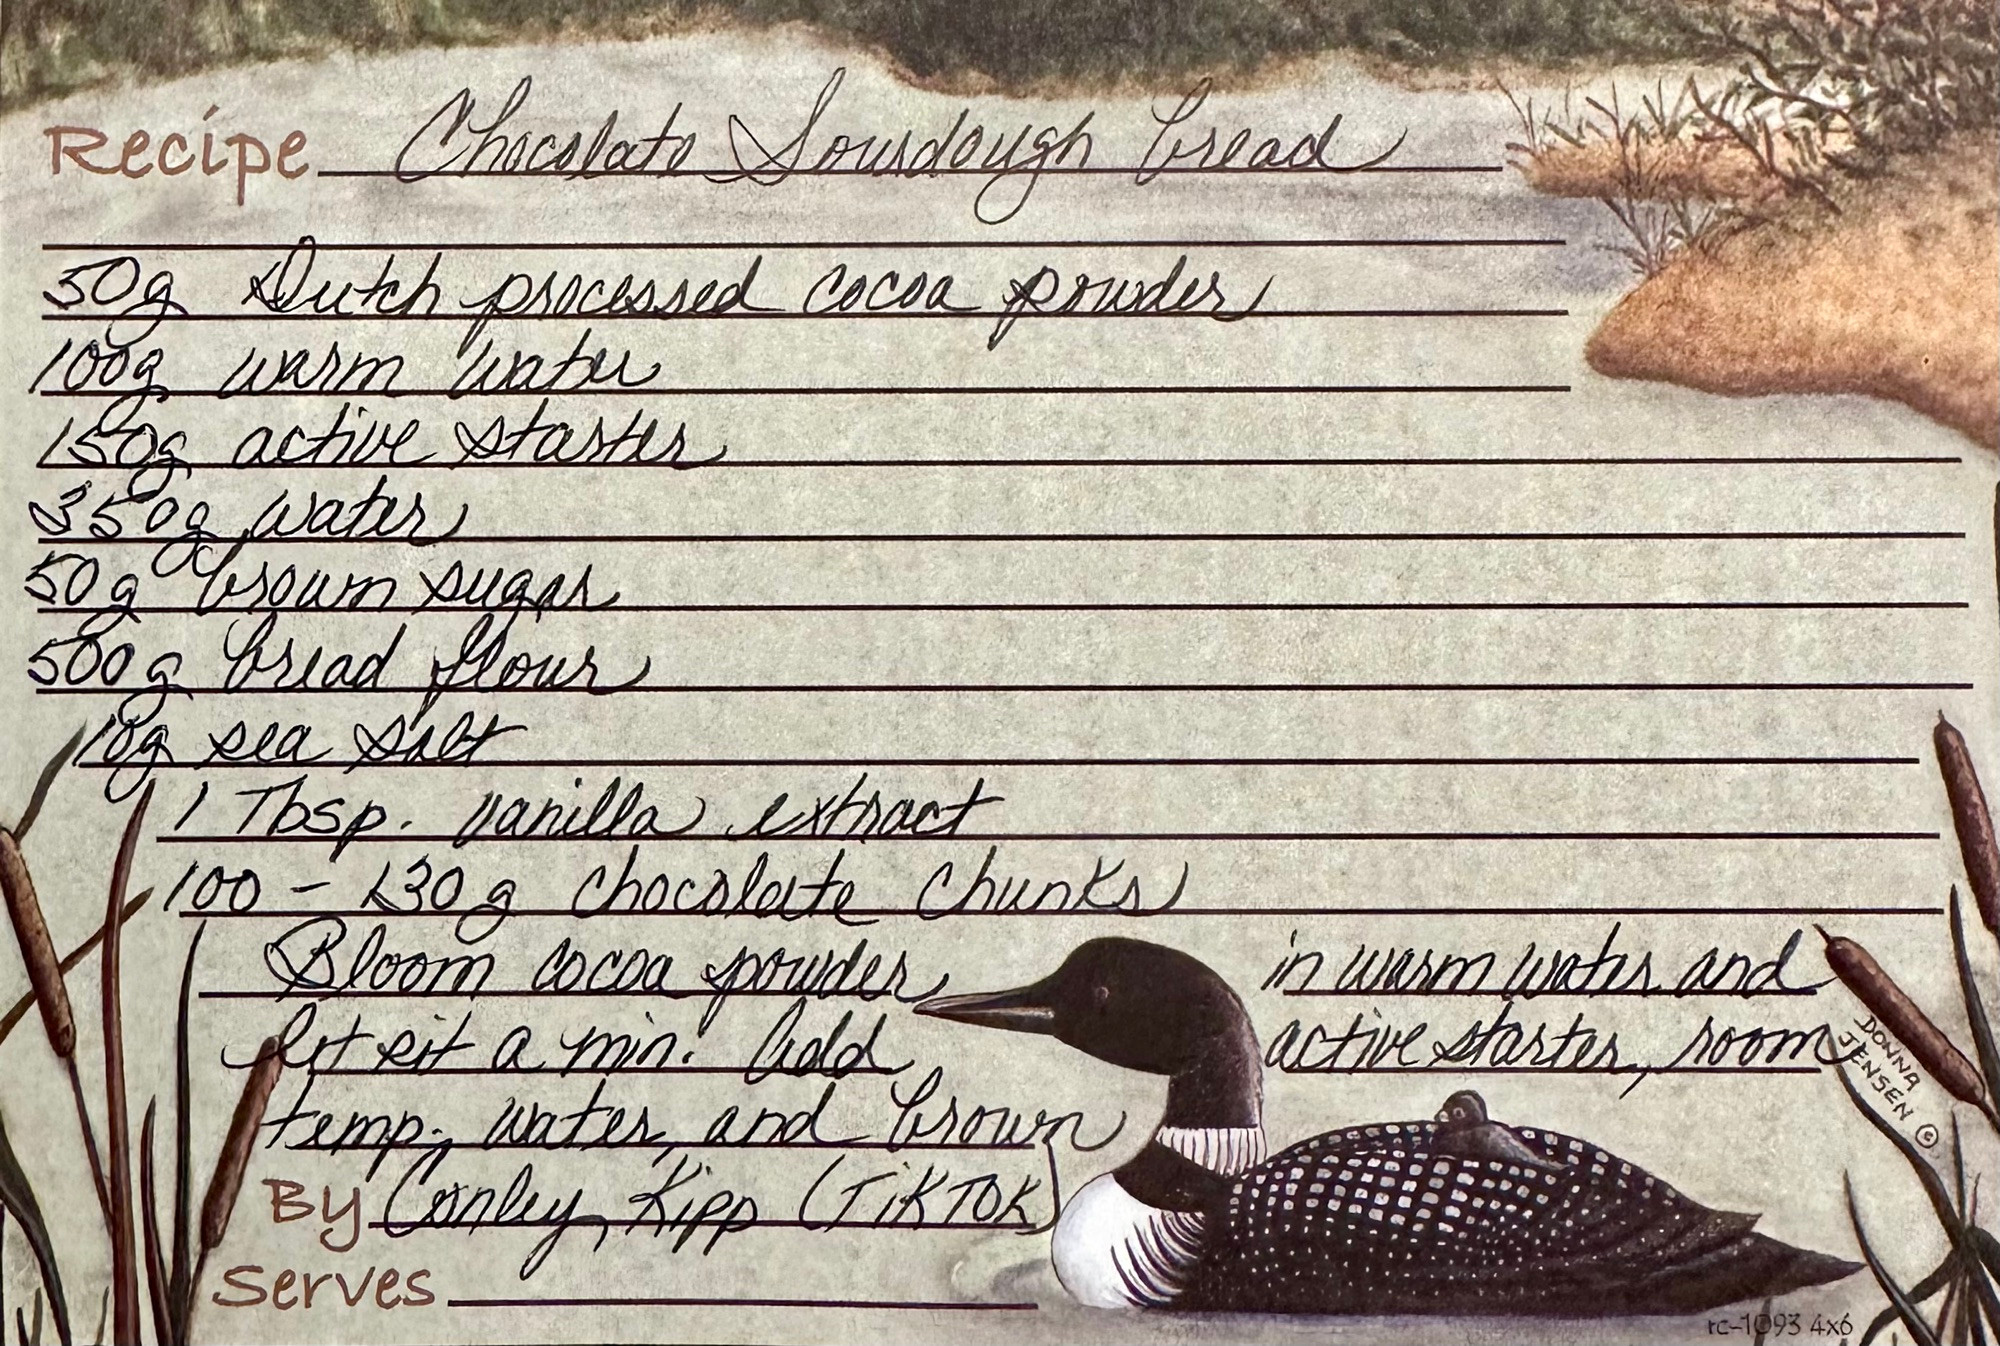 Recipe Chocolate Sourdough bread
50g Dutch processed cocoa powder
100g warm water
150g active starter
350g water
50g brown sugar
500g bread flour
10g sea salt
1 Tbsp. vanilla extract
100 - 130g chocolate chunks
Bloom cocoa powder in warm water and
let sit a min. Add active starter, room
temp. water, and brown
By Conley, Kipp (TikTok)
Serves
DONNA
JENSEN ©
rc-1093 4x6